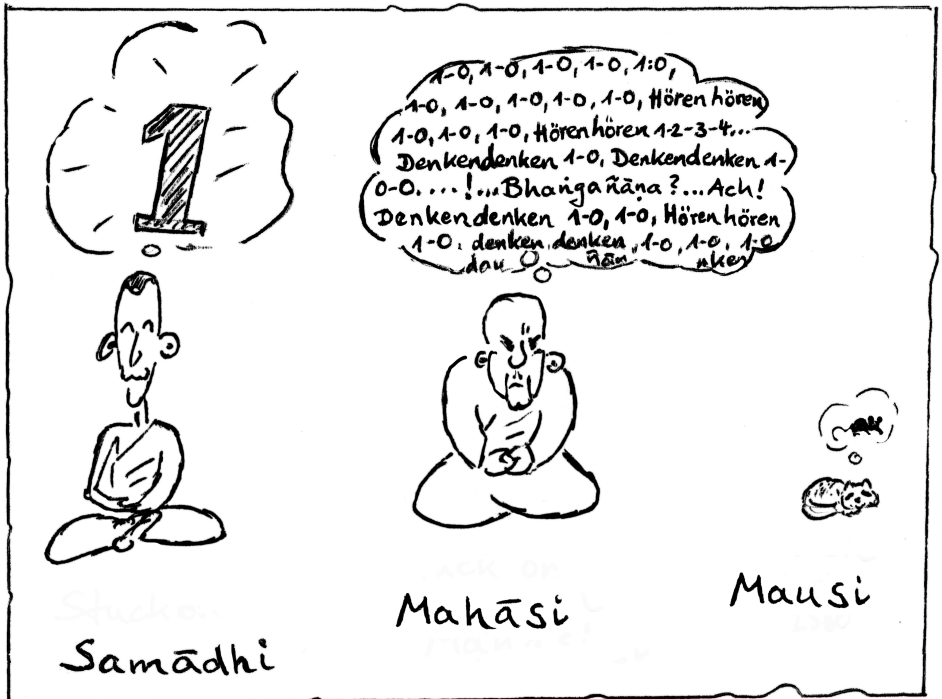 1
1-0, 1-0, 1-0, 1-0, 1:0,
1-0, 1-0, 1-0, 1-0, 1-0, Hören hören
1-0, 1-0, 1-0, Hören hören 1-2-3-4...
Denkendenken 1-0, Denkendenken 1-
0-0.....!...Bhaṅgañāṇa?...Ach!
Denkendenken 1-0, 1-0, Hören hören
1-0, denken, denken, 1-0, 1-0, 1-0
Samādhi
Mahāsi
Mausi